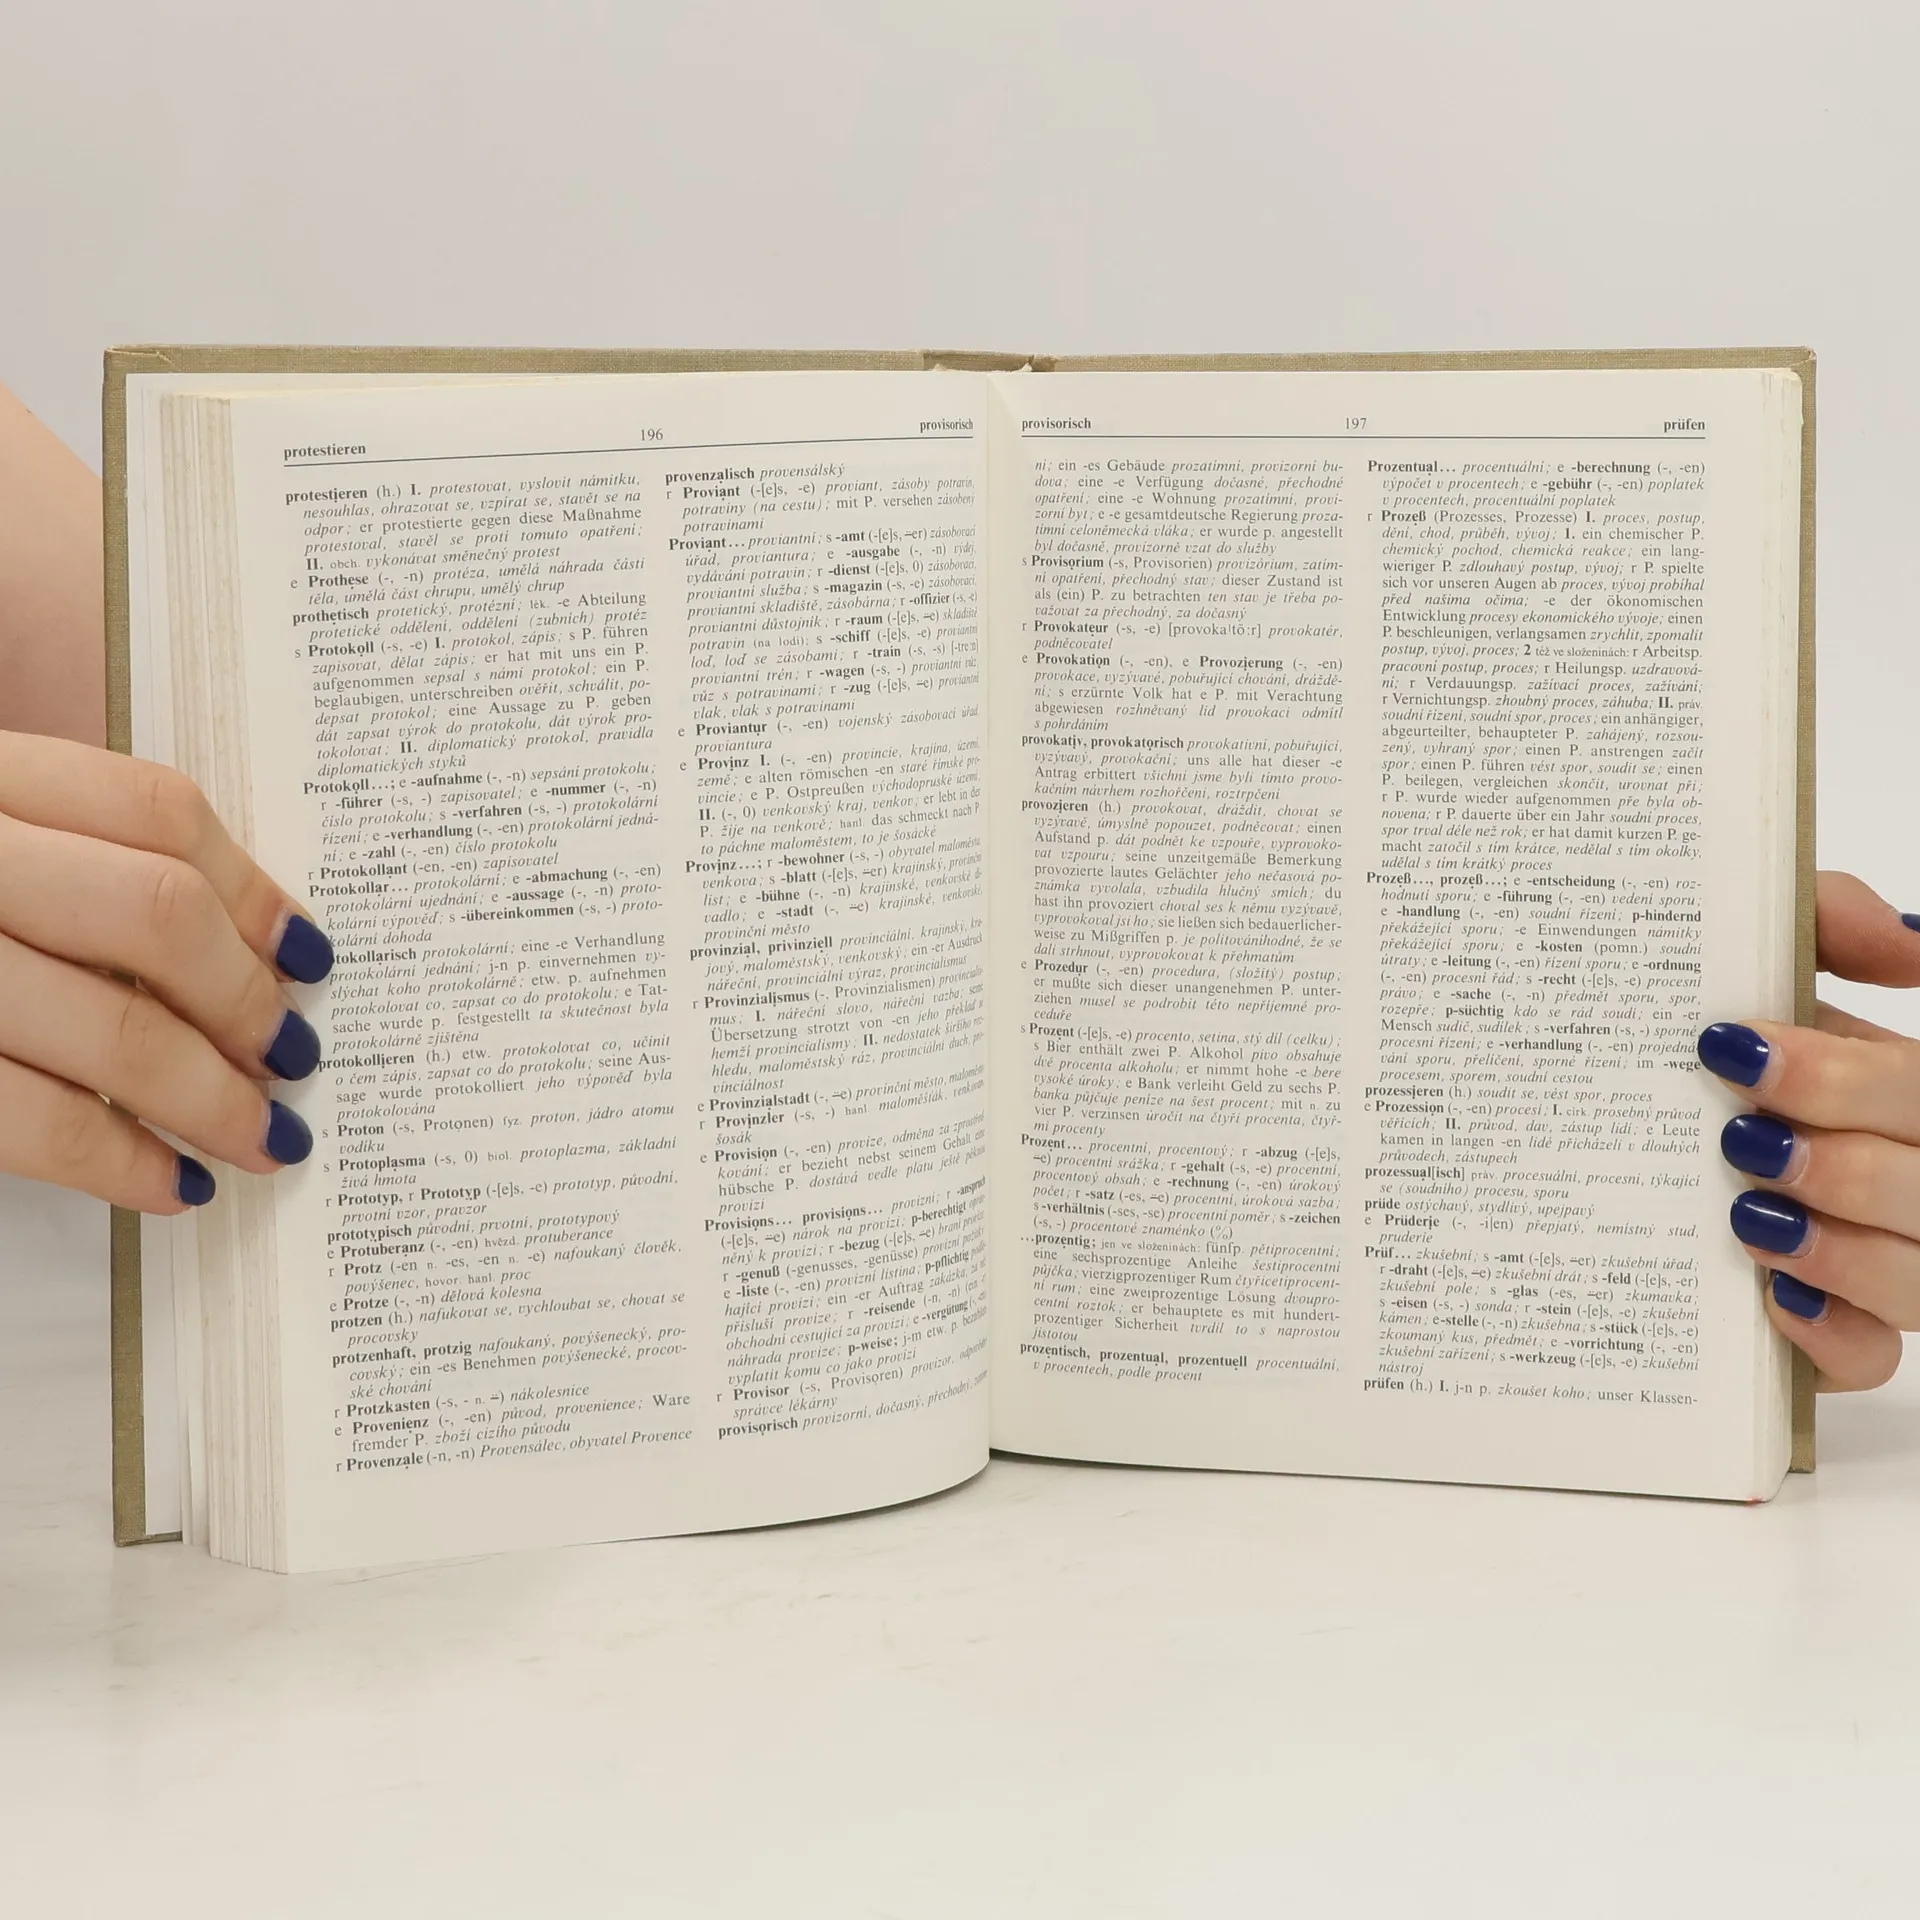 protestieren
196
provisorisch
protestieren (h.) I. protestovat, vyslovit námitku,
nesouhlas, ohrazovat se, vzpírat se, stavět se na
odpor; er protestierte gegen diese Maßnahme
protestoval, stavěl se proti tomuto opatření;
II. obch. vykonávat směnečný protest
e Prothese (-, -n) protéza, umělá náhrada části
těla, umělá část chrupu, umělý chrup
prothetisch protetický, protézní; lék. -e Abteilung
protetické oddělení, oddělení (zubních) protéz
s Protokoll (-s, -e) I. protokol, zápis; s P. führen
zapisovat, dělat zápis; er hat mit uns ein P.
aufgenommen sepsal s námi protokol; ein P.
beglaubigen, unterschreiben ověřit, schválit, po-
depsat protokol; eine Aussage zu P. geben
dát zapsat výrok do protokolu, dát výrok pro-
tokolovat; II. diplomatický protokol, pravidla
diplomatických styků
Protokoll...; e -aufnahme (-, -n) sepsání protokolu;
r -führer (-s, -) zapisovatel; e -nummer (-, -n)
číslo protokolu; s -verfahren (-s, -) protokolární
řízení; e -verhandlung (-, -en) protokolární jedná-
ní; e -zahl (-, -en) číslo protokolu
r Protokollant (-en, -en) zapisovatel
Protokollar... protokolární; e -abmachung (-, -en)
protokolární ujednání; e -aussage (-, -n) proto-
kolární výpověď; s -übereinkommen (-s, -) proto-
kolární dohoda
tokollarisch protokolární; eine -e Verhandlung
protokolární jednání; j-n p. einvernehmen vy-
slýchat koho protokolárně; etw. p. aufnehmen
protokolovat co, zapsat co do protokolu; e Tat-
sache wurde p. festgestellt ta skutečnost byla
protokolárně zjištěna
protokollieren (h.) etw. protokolovat co, učinit
o čem zápis, zapsat co do protokolu; seine Aus-
sage wurde protokolliert jeho výpověď byla
protokolována
s Proton (-s, Protonen) fyz. proton, jádro atomu
vodíku
s Protoplasma (-s, 0) biol. protoplazma, základní
živá hmota
r Prototyp, r Prototyp (-[e]s, -e) prototyp, původní,
prvotní vzor, pravzor
prototypisch původní, prvotní, prototypový
e Protuberanz (-, -en) hvězd. protuberance
r Protz (-en n. -es, -en n. -e) nafoukaný člověk,
povýšenec, hovor. hanl. proc
e Protze (-, -n) dělová kolesna
protzen (h.) nafukovat se, vychloubat se, chovat se
procovsky
protzenhaft, protzig nafoukaný, povýšenecký, pro-
covský; ein -es Benehmen povýšenecké, procov-
ské chování
r Protzkasten (-s, - n. ⸚) nákolesnice
e Provenienz (-, -en) původ, provenience; Ware
fremder P. zboží cizího původu
r Provenzale (-n, -n) Provensálec, obyvatel Provence
provenzalisch provensálský
r Proviant (-[e]s, -e) proviant, zásoby potravin,
potraviny (na cestu); mit P. versehen zásobený
potravinami
Proviant... proviantní; s -amt (-[e]s, ⸚er) zásobovací
úřad, proviantura; e -ausgabe (-, -n) výdej,
vydávání potravin; r -dienst (-[e]s, 0) zásobovací,
proviantní služba; s -magazin (-s, -e) zásobovací,
proviantní skladiště, zásobárna; r -offizier (-s, -e)
proviantní důstojník; r -raum (-[e]s, ⸚e) skladiště
potravin (na lodi); s -schiff (-[e]s, -e) proviantní
loď, loď se zásobami; r -train (-s, -s) [-trɛ:n]
proviantní trén; r -wagen (-s, -) proviantní vůz,
vůz s potravinami; r -zug (-[e]s, ⸚e) proviantní
vlak, vlak s potravinami
e Proviantur (-, -en) vojenský zásobovací úřad,
proviantura
e Provinz I. (-, -en) provincie, krajina, území,
země; e alten römischen -en staré římské pro-
vincie; e P. Ostpreußen východopruské území,
II. (-, 0) venkovský kraj, venkov; er lebt in der
P. žije na venkově; hanl. das schmeckt nach P.
to páchne maloměstem, to je šosácké
Provinz...; r -bewohner (-s, -) obyvatel maloměsta,
venkova; s -blatt (-[e]s, ⸚er) krajinský, provinční
list; e -bühne (-, -n) krajinské, venkovské di-
vadlo; e -stadt (-, ⸚e) krajinské, venkovské,
provinční město
provinzial, privinziell provinciální, krajinský, kra-
jový, maloměstský, venkovský; ein -er Ausdruck
nářeční, provinciální výraz, provincialismus
r Provinzialismus (-, Provinzialismen) provincialis-
mus; I. nářeční slovo, nářeční vazba; seine
Übersetzung strotzt von -en jeho překlad se
hemží provincialismy; II. nedostatek širšího roz-
hledu, maloměstský ráz, provinciální duch, pro-
vinciálnost
e Provinzialstadt (-, ⸚e) provinční město, maloměsto
r Provinzler (-s, -) hanl. maloměšťák, venkovan,
šosák
e Provision (-, -en) provize, odměna za zprostřed-
kování; er bezieht nebst seinem Gehalt eine
hübsche P. dostává vedle platu ještě pěknou
provizi
Provisions... provisions... provizní; r -anspruch
(-[e]s, ⸚e) nárok na provizi; p-berechtigt opráv-
něný k provizi; r -bezug (-[e]s, ⸚e) braní provize;
r -genuß (-genusses, -genüsse) provizní požitky
e -liste (-, -en) provizní listina; p-pflichtig podlé-
hající provizi; ein -er Auftrag zakázka, za niž
přísluší provize; r -reisende (-n, -n) (ein -r)
obchodní cestující za provizi; e -vergütung (-, -en)
náhrada provize; p-weise; j-m etw. p. bezahlen
vyplatit komu co jako provizi
r Provisor (-s, Provisoren) provizor, odpovědný
správce lékárny
provisorisch provizorní, dočasný, přechodný, zatím-
provisorisch
197
prüfen
ní; ein -es Gebäude prozatímní, provizorní bu-
dova; eine -e Verfügung dočasné, přechodné
opatření; eine -e Wohnung prozatímní, provi-
zorní byt; e -e gesamtdeutsche Regierung proza-
tímní celoněmecká vláda; er wurde p. angestellt
byl dočasně, provizorně vzat do služby
s Provisorium (-s, Provisorien) provizórium, zatím-
ní opatření, přechodný stav; dieser Zustand ist
als (ein) P. zu betrachten ten stav je třeba po-
važovat za přechodný, za dočasný
r Provokateur (-s, -e) [provoka|tö:r] provokatér,
podněcovatel
e Provokation (-, -en), e Provozierung (-, -en)
provokace, vyzývavé, pobuřující chování, dráždě-
ní; s erzürnte Volk hat e P. mit Verachtung
abgewiesen rozhněvaný lid provokaci odmítl
s pohrdáním
provokativ, provokatorisch provokativní, pobuřující,
vyzývavý, provokační; uns alle hat dieser -e
Antrag erbittert všichni jsme byli tímto provo-
kačním návrhem rozhořčeni, roztrpčeni
provozieren (h.) provokovat, dráždit, chovat se
vyzývavě, úmyslně popouzet, podněcovat; einen
Aufstand p. dát podnět ke vzpouře, vyprovoko-
vat vzpouru; seine unzeitgemäße Bemerkung
provozierte lautes Gelächter jeho nečasová po-
známka vyvolala, vzbudila hlučný smích; du
hast ihn provoziert choval ses k němu vyzývavě,
vyprovokoval jsi ho; sie ließen sich bedauerlicher-
weise zu Mißgriffen p. je politováníhodné, že se
dali strhnout, vyprovokovat k přehmatům
e Prozedur (-, -en) procedura, (složitý) postup;
er mußte sich dieser unangenehmen P. unter-
ziehen musel se podrobit této nepříjemné pro-
ceduře
s Prozent (-[e]s, -e) procento, setina, stý díl (celku);
s Bier enthält zwei P. Alkohol pivo obsahuje
dvě procenta alkoholu; er nimmt hohe -e bere
vysoké úroky; e Bank verleiht Geld zu sechs P.
banka půjčuje peníze na šest procent; mit n. zu
vier P. verzinsen úročit na čtyři procenta, čtyř-
mi procenty
Prozent... procentní, procentový; r -abzug (-[e]s,
⸚e) procentní srážka; r -gehalt (-s, -e) procentní,
procentový obsah; e -rechnung (-, -en) úrokový
počet; r -satz (-es, ⸚e) procentní, úroková sazba;
s -verhältnis (-ses, -se) procentní poměr; s -zeichen
(-s, -) procentové znaménko (%)
...prozentig; jen ve složeninách: fünfp. pětiprocentní;
eine sechsprozentige Anleihe šestiprocentní
půjčka; vierzigprozentiger Rum čtyřicetiprocent-
ní rum; eine zweiprozentige Lösung dvoupro-
centní roztok; er behauptete es mit hundert-
prozentiger Sicherheit tvrdil to s naprostou
jistotou
prozentisch, prozentual, prozentuell procentuální,
v procentech, podle procent
Prozentual... procentuální; e -berechnung (-, -en)
výpočet v procentech; e -gebühr (-, -en) poplatek
v procentech, procentuální poplatek
r Prozeß (Prozesses, Prozesse) I. proces, postup,
dění, chod, průběh, vývoj; 1. ein chemischer P.
chemický pochod, chemická reakce; ein lang-
wieriger P. zdlouhavý postup, vývoj; r P. spielte
sich vor unseren Augen ab proces, vývoj probíhal
před našima očima; -e der ökonomischen
Entwicklung procesy ekonomického vývoje; einen
P. beschleunigen, verlangsamen zrychlit, zpomalit
postup, vývoj, proces; 2 též ve složeninách: r Arbeitsp.
pracovní postup, proces; r Heilungsp. uzdravová-
ní; r Verdauungsp. zažívací proces, zažívání;
r Vernichtungsp. zhoubný proces, záhuba; II. práv.
soudní řízení, soudní spor, proces; ein anhängiger,
abgeurteilter, behaupteter P. zahájený, rozsou-
zený, vyhraný spor; einen P. anstrengen začít
spor; einen P. führen vést spor, soudit se; einen
P. beilegen, vergleichen skončit, urovnat při;
r P. wurde wieder aufgenommen pře byla ob-
novena; r P. dauerte über ein Jahr soudní proces,
spor trval déle než rok; er hat damit kurzen P. ge-
macht zatočil s tím krátce, nedělal s tím okolky,
udělal s tím krátký proces
Prozeß..., prozeß...; e -entscheidung (-, -en) roz-
hodnutí sporu; e -führung (-, -en) vedení sporu;
e -handlung (-, -en) soudní řízení; p-hindernd
překážející sporu; -e Einwendungen námitky
překážející sporu; e -kosten (pomn.) soudní
útraty; e -leitung (-, -en) řízení sporu; e -ordnung
(-, -en) procesní řád; s -recht (-[e]s, -e) procesní
právo; e -sache (-, -n) předmět sporu, spor,
rozepře; p-süchtig kdo se rád soudí; ein -er
Mensch sudič, sudílek; s -verfahren (-s, -) sporné,
procesní řízení; e -verhandlung (-, -en) projedná-
vání sporu, přelíčení, sporné řízení; im -wege
procesem, sporem, soudní cestou
prozessieren (h.) soudit se, vést spor, proces
e Prozession (-, -en) procesí; I. círk. prosebný průvod
věřících; II. průvod, dav, zástup lidí; e Leute
kamen in langen -en lidé přicházeli v dlouhých
průvodech, zástupech
prozessual[isch] práv. procesuální, procesní, týkající
se (soudního) procesu, sporu
prüde ostýchavý, stydlivý, upejpavý
e Prüderie (-, -i|en) přepjatý, nemístný stud,
pruderie
Prüf... zkušební; s -amt (-[e]s, ⸚er) zkušební úřad;
r -draht (-[e]s, ⸚e) zkušební drát; s -feld (-[e]s, -er)
zkušební pole; s -glas (-es, ⸚er) zkumavka;
s -eisen (-s, -) sonda; r -stein (-[e]s, -e) zkušební
kámen; e-stelle (-, -n) zkušebna; s -stück (-[e]s, -e)
zkoumaný kus, předmět; e -vorrichtung (-, -en)
zkušební zařízení; s -werkzeug (-[e]s, -e) zkušební
nástroj
prüfen (h.) I. j-n p. zkoušet koho; unser Klassen-